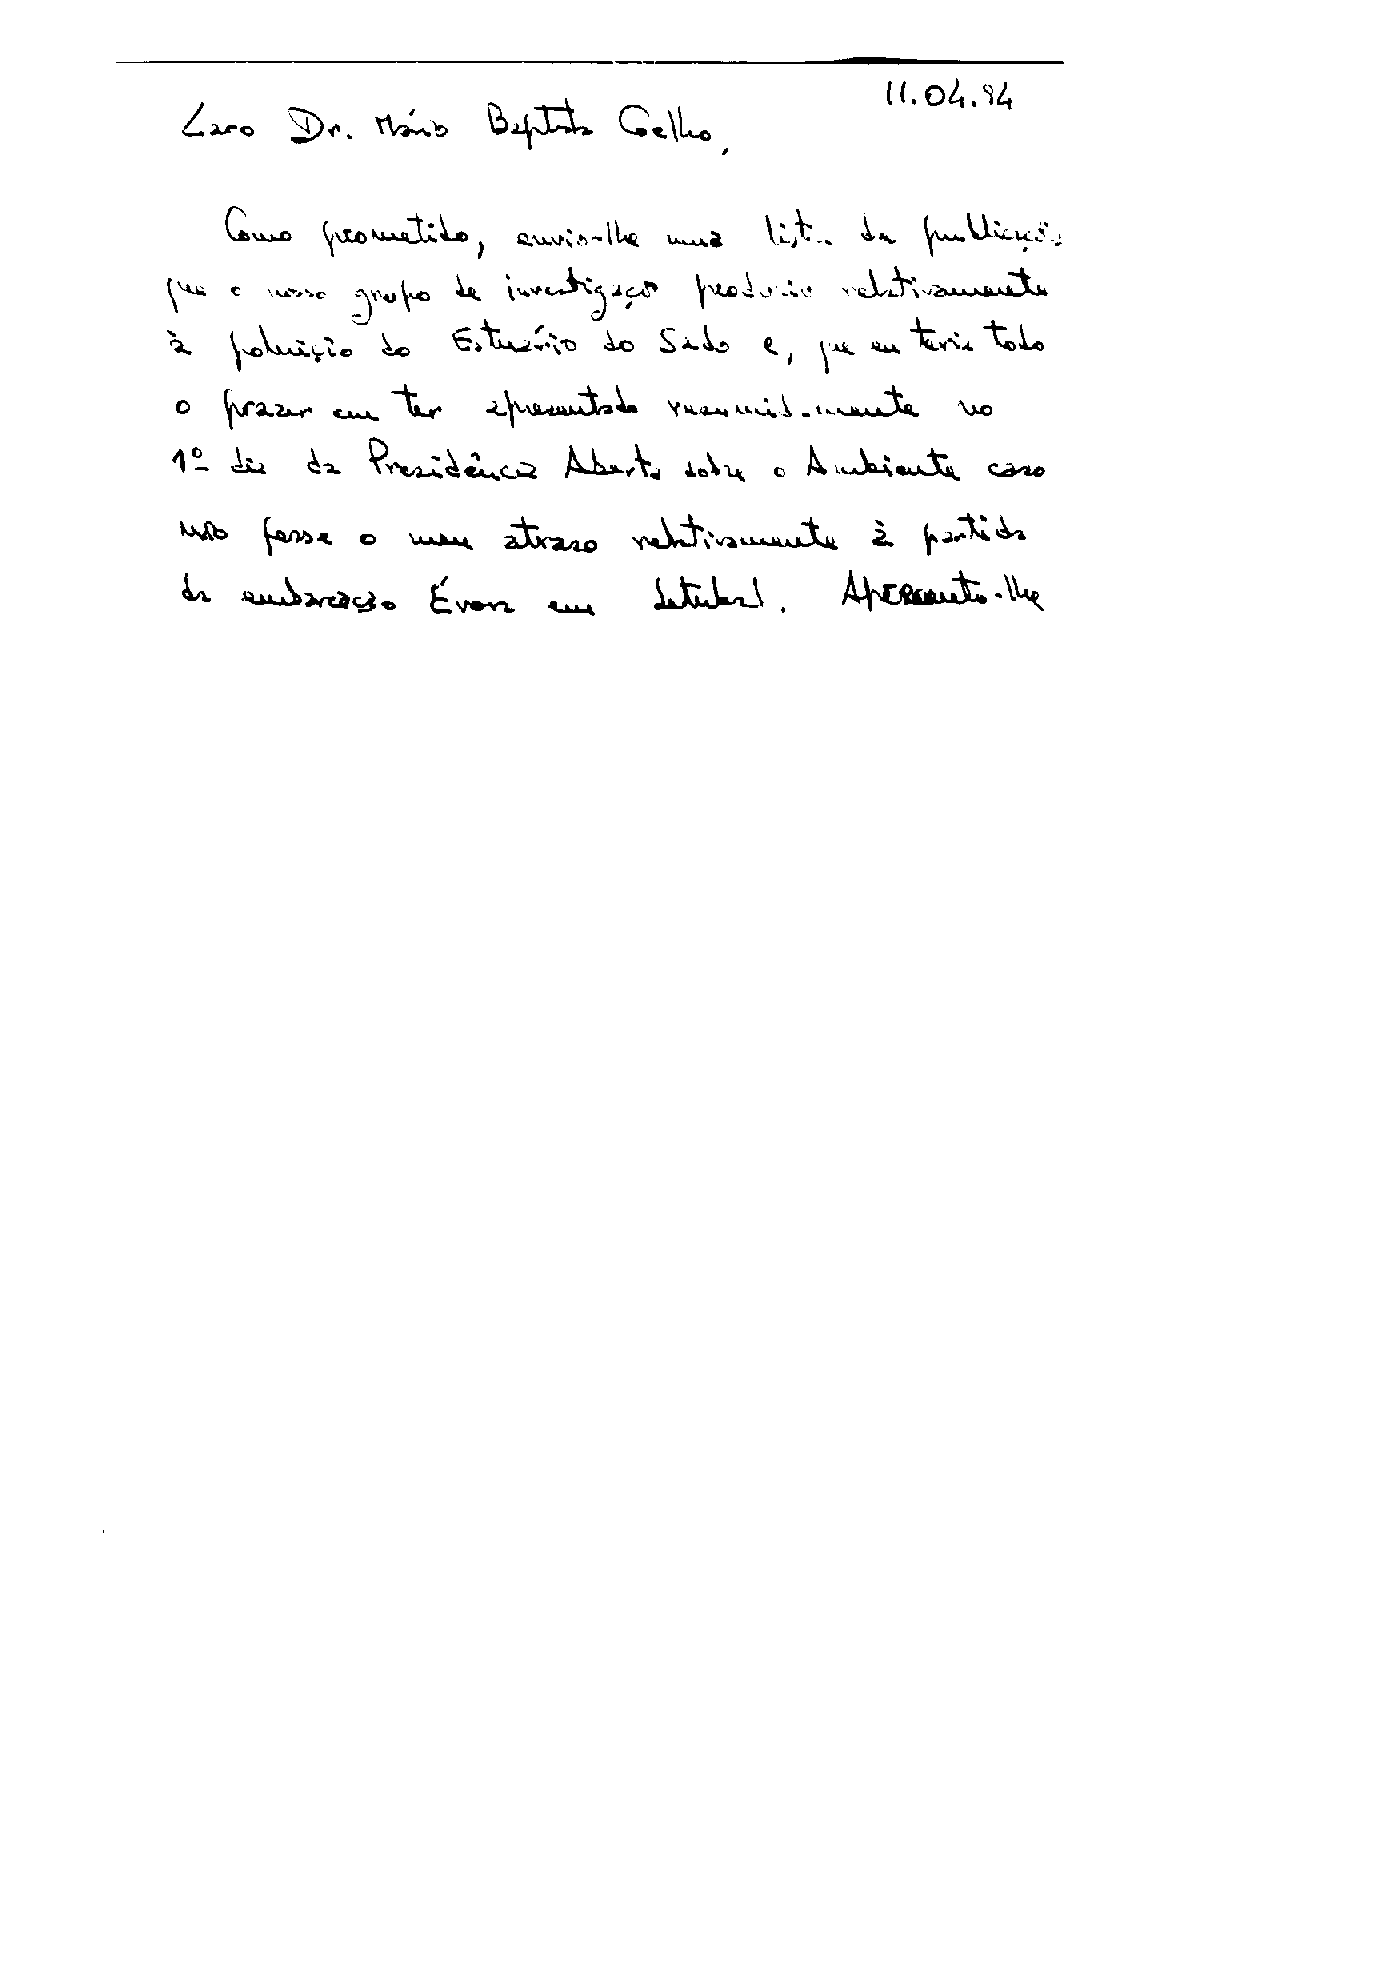 11.04.94
Caro Dr. Mário Baptista Coelho,
Como prometido, envio-lhe uma lista da publicação
que o nosso grupo de investigação produziu relativamente
à poluição do Estuário do Sado e, que eu teria todo
o prazer em ter apresentado resumidamente no
1º dia da Presidência Aberta sobre o Ambiente caso
não fosse o meu atraso relativamente à partida
da embarcação Évora em Setubal. Apresento-lhe